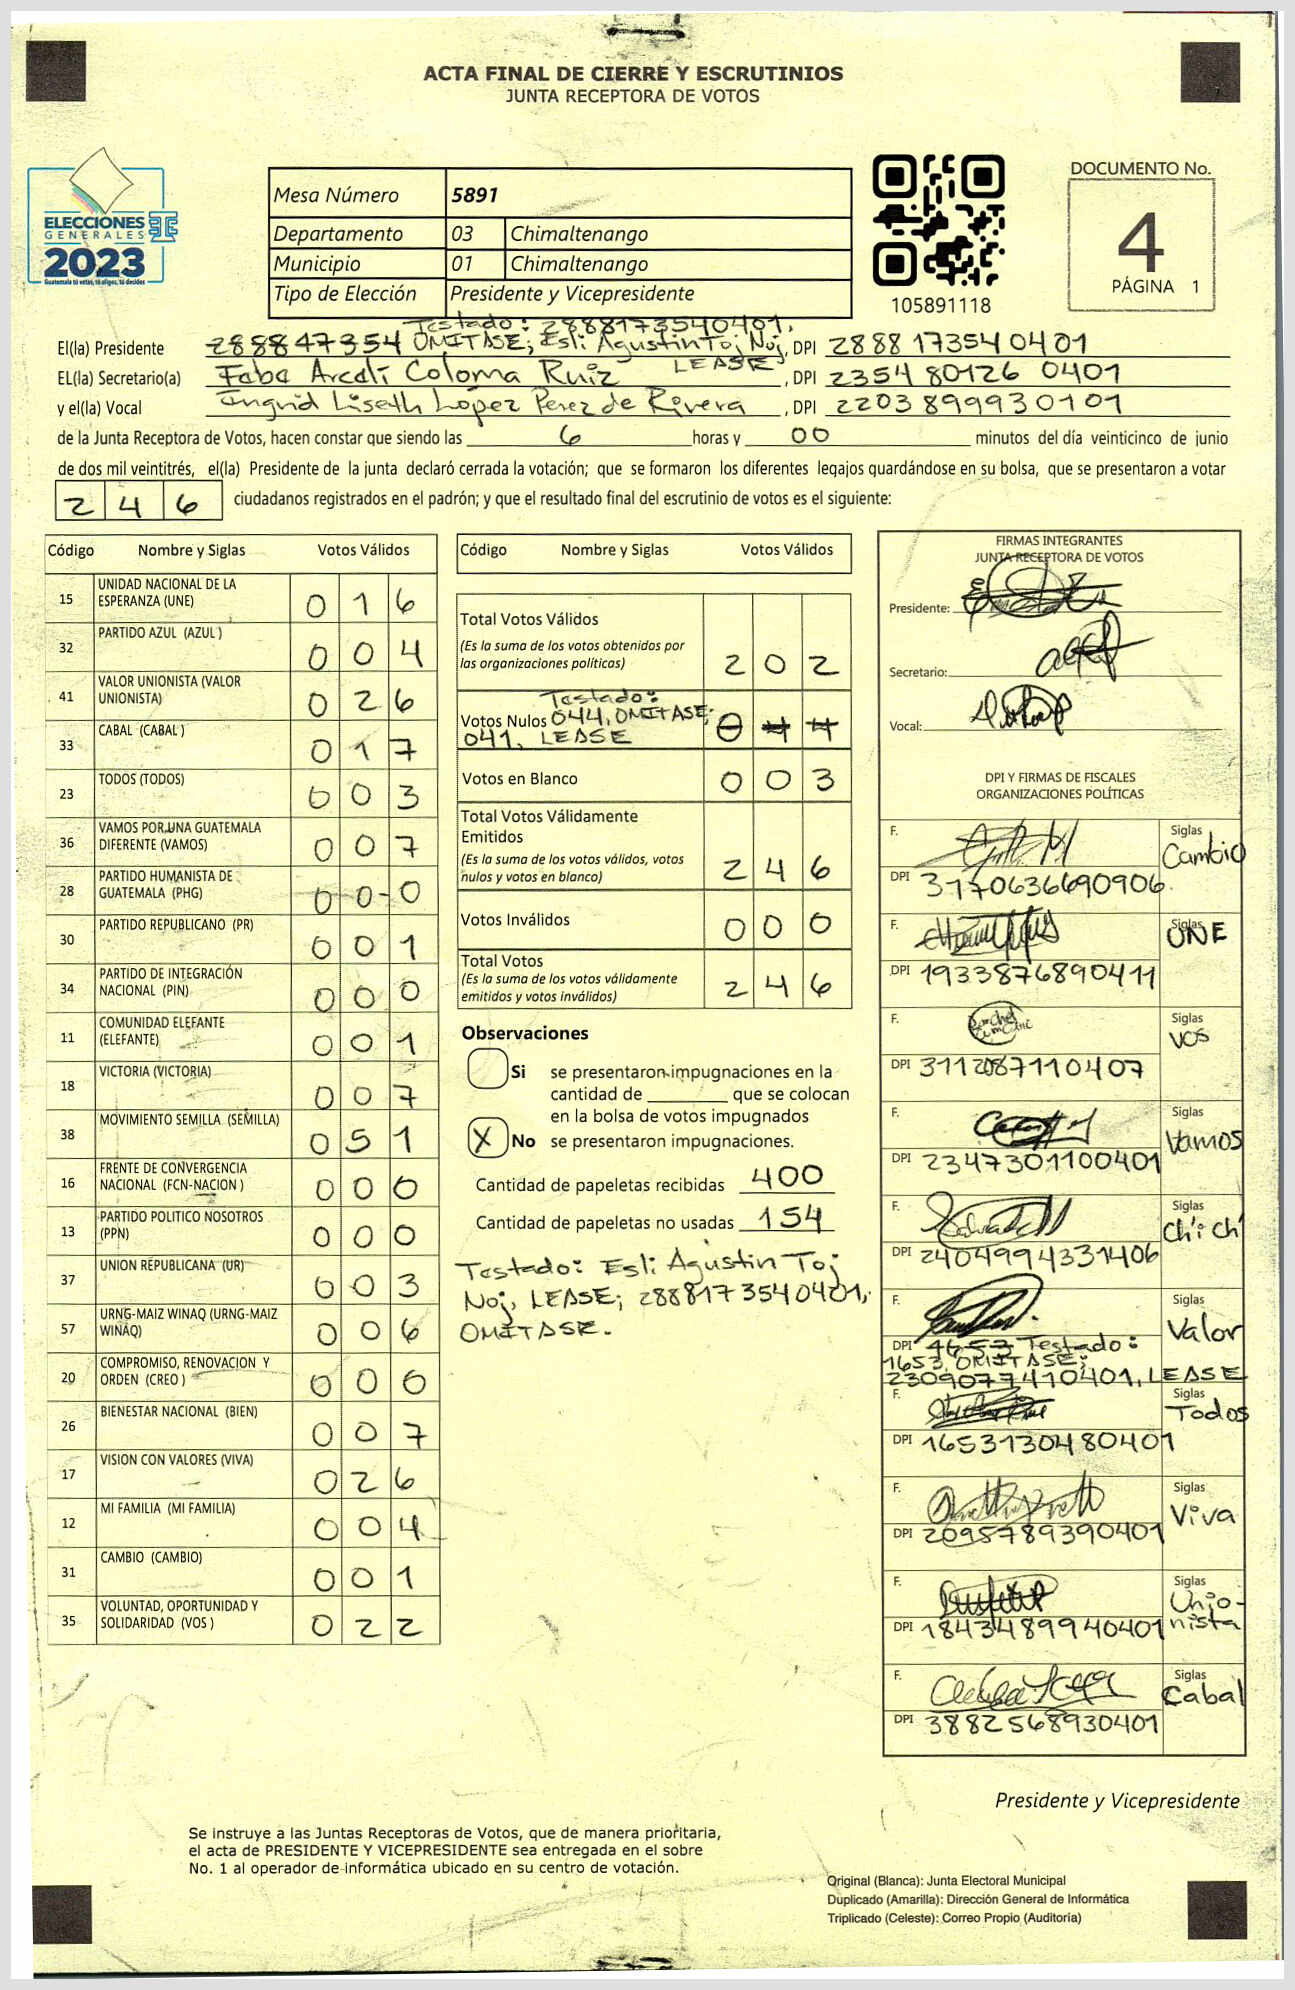 ACTA FINAL DE CIERRE Y ESCRUTINIOS
JUNTA RECEPTORA DE VOTOS
ELECCIONES
GENERALES
2023
Guatemala tú votas, tú eliges, tú decides
Mesa Número 5891
Departamento 03 Chimaltenango
Municipio 01 Chimaltenango
Tipo de Elección Presidente y Vicepresidente
105891118
DOCUMENTO No.
4
PÁGINA 1
Testado: 2888173540401,
El(la) Presidente 288847354 OMITASE; Esli Agustin Toj Noj, LEASE, DPI 2888 17354 0401
EL(la) Secretario(a) Feba Arcali Coloma Ruiz, DPI 2354 80126 0401
y el(la) Vocal Ingrid Liseth López Perez de Rivera, DPI 2203 89993 0101
de la Junta Receptora de Votos, hacen constar que siendo las 6 horas y 00 minutos del día veinticinco de junio
de dos mil veintitrés, el(la) Presidente de la junta declaró cerrada la votación; que se formaron los diferentes legajos guardándose en su bolsa, que se presentaron a votar
246 ciudadanos registrados en el padrón; y que el resultado final del escrutinio de votos es el siguiente:
Código Nombre y Siglas Votos Válidos
15 UNIDAD NACIONAL DE LA ESPERANZA (UNE) 016
32 PARTIDO AZUL (AZUL ) 004
41 VALOR UNIONISTA (VALOR UNIONISTA) 026
33 CABAL (CABAL ) 017
23 TODOS (TODOS) 003
36 VAMOS POR UNA GUATEMALA DIFERENTE (VAMOS) 007
28 PARTIDO HUMANISTA DE GUATEMALA (PHG) 00-0
30 PARTIDO REPUBLICANO (PR) 001
34 PARTIDO DE INTEGRACIÓN NACIONAL (PIN) 000
11 COMUNIDAD ELEFANTE (ELEFANTE) 001
18 VICTORIA (VICTORIA) 007
38 MOVIMIENTO SEMILLA (SEMILLA) 051
16 FRENTE DE CONVERGENCIA NACIONAL (FCN-NACION ) 000
13 PARTIDO POLITICO NOSOTROS (PPN) 000
37 UNION REPUBLICANA (UR) 003
57 URNG-MAIZ WINAQ (URNG-MAIZ WINAQ) 006
20 COMPROMISO, RENOVACION Y ORDEN (CREO ) 000
26 BIENESTAR NACIONAL (BIEN) 007
17 VISION CON VALORES (VIVA) 026
12 MI FAMILIA (MI FAMILIA) 004
31 CAMBIO (CAMBIO) 001
35 VOLUNTAD, OPORTUNIDAD Y SOLIDARIDAD (VOS ) 022
Código Nombre y Siglas Votos Válidos
Total Votos Válidos
(Es la suma de los votos obtenidos por
las organizaciones políticas) 202
Testado:
Votos Nulos 044, OMITASE; 044
041, LEASE
Votos en Blanco 003
Total Votos Válidamente
Emitidos
(Es la suma de los votos válidos, votos
nulos y votos en blanco) 246
Votos Inválidos 000
Total Votos
(Es la suma de los votos válidamente
emitidos y votos inválidos) 246
Observaciones
Si se presentaron impugnaciones en la
cantidad de ________ que se colocan
en la bolsa de votos impugnados
X No se presentaron impugnaciones.
Cantidad de papeletas recibidas 400
Cantidad de papeletas no usadas 154
Testado: Esli Agustin Toj
Noj, LEASE; 2888173540401,
OMITASE.
FIRMAS INTEGRANTES
JUNTA RECEPTORA DE VOTOS
Presidente:
Secretario:
Vocal:
DPI Y FIRMAS DE FISCALES
ORGANIZACIONES POLÍTICAS
F. Siglas Cambio
DPI 3170636690906
F. Siglas UNE
DPI 1933876890411
F. Siglas VOS
DPI 3112087110407
F. Siglas Vamos
DPI 2347301100401
F. Siglas Ch'i Ch'
DPI 2404994331406
F. Siglas Valor
DPI 1653 Testado:
1653, OMITASE;
2309077410401, LEASE
F. Siglas Todos
DPI 1653130480401
F. Siglas Viva
DPI 2095789390401
F. Siglas Unio-
DPI 1843489940401 nista
F. Siglas Cabal
DPI 3882568930401
Presidente y Vicepresidente
Se instruye a las Juntas Receptoras de Votos, que de manera prioritaria,
el acta de PRESIDENTE Y VICEPRESIDENTE sea entregada en el sobre
No. 1 al operador de informática ubicado en su centro de votación.
Original (Blanca): Junta Electoral Municipal
Duplicado (Amarilla): Dirección General de Informática
Triplicado (Celeste): Correo Propio (Auditoría)